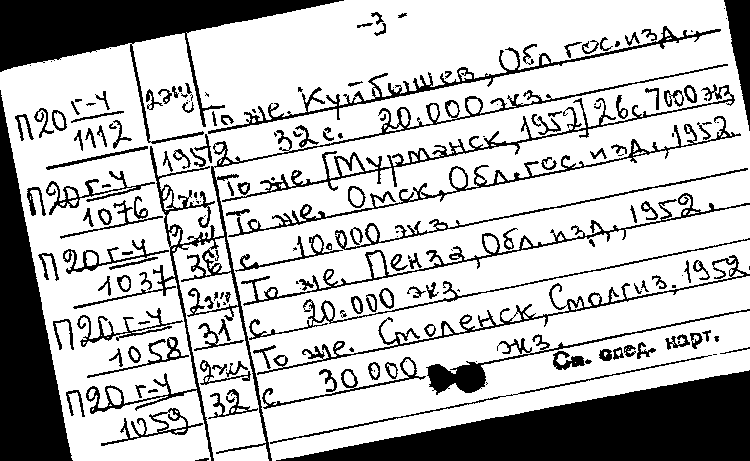 -3-
П20 г-4 2эк То же. Куйбышев, Обл. гос. изд.,
1112 1952. 32 с. 20.000 экз.
П20 г-4 2эк То же. [Мурманск, 1952] 26 с. 7000 экз
1076
П20 г-4 2эк То же. Омск, Обл. гос. изд., 1952
1037 36 с. 10.000 экз.
П20 г-4 2эк То же. Пенза, Обл. изд., 1952.
1058 31 с. 20.000 экз
П20 г-4 2эк То же. Смоленск, Смолгиз, 1952.
1059 32 с. 30 000 экз.
См. след. карт.